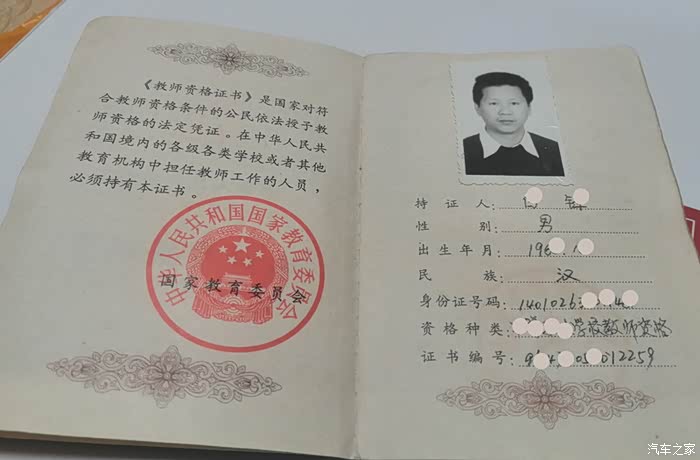 《教师资格证书》是国家对符
合教师资格条件的公民依法授予教
师资格的法定凭证。在中华人民共
和国境内的各级各类学校或者其他
教育机构中担任教师工作的人员，
必须持有本证书。
中华人民共和国国家教育委员会
国家教育委员会
持证人：
性别：男
出生年月：196
民族：汉
身份证号码：
资格种类：学校教师资格
证书编号：
汽车之家